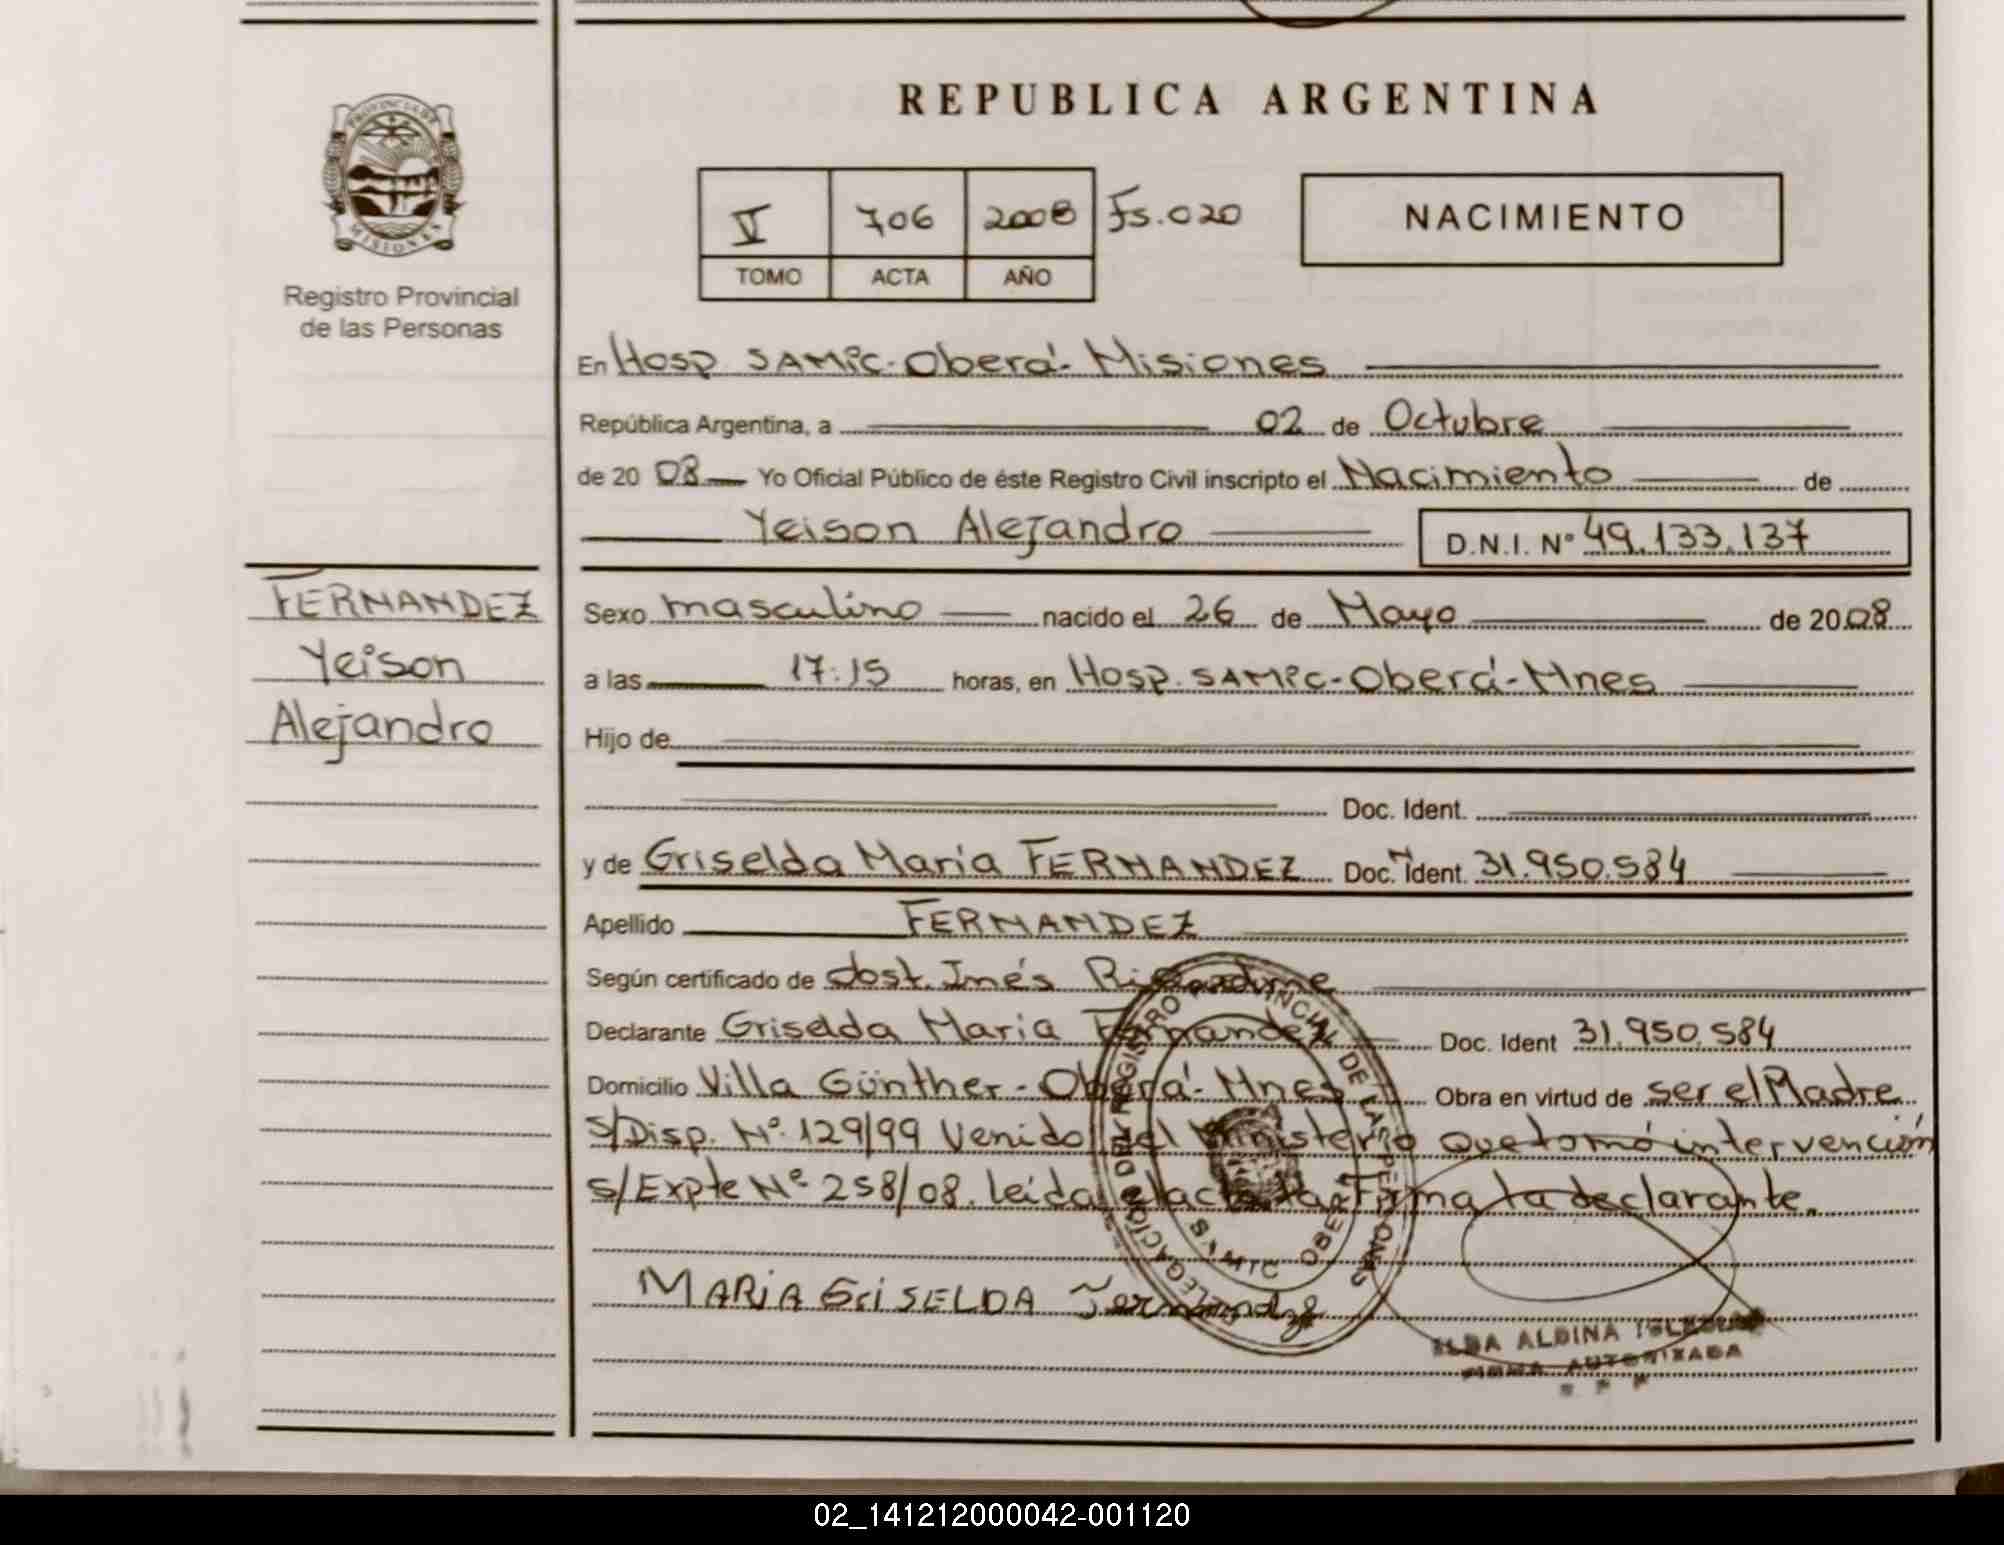 REPUBLICA ARGENTINA
PROVINCIA DE MISIONES
Registro Provincial
de las Personas
V 706 2008 Fs.020
TOMO ACTA AÑO
NACIMIENTO
En Hosp SAMIC-Oberá-Misiones
República Argentina, a 02 de Octubre
de 20 08 Yo Oficial Público de éste Registro Civil inscripto el Nacimiento de
Yeison Alejandro D.N.I. Nº 49.133.137
FERNANDEZ
Yeison
Alejandro
Sexo masculino nacido el 26 de Mayo de 2008
a las 17:15 horas, en Hosp. SAMIC-Oberá-Mnes
Hijo de
Doc. Ident.
y de Griselda Maria FERNANDEZ Doc. Ident. 31.950.584
Apellido FERNANDEZ
Según certificado de obst. Inés
Declarante Griselda Maria Fernandez Doc. Ident 31.950.584
Domicilio Villa Günther-Oberá-Mnes Obra en virtud de ser el Madre
S/Disp. Nº 129/99 Venido del Ministerio que tomó intervención
s/Expte Nº 258/08. leída el acta la firma la declarante.
MARIA GRISELDA Fernandez
REGISTRO PROVINCIAL DE LAS PERSONAS
DELEGACIÓN
SAMIC OBERA
ALBINA
FIRMA AUTORIZADA
R P P
02_141212000042-001120